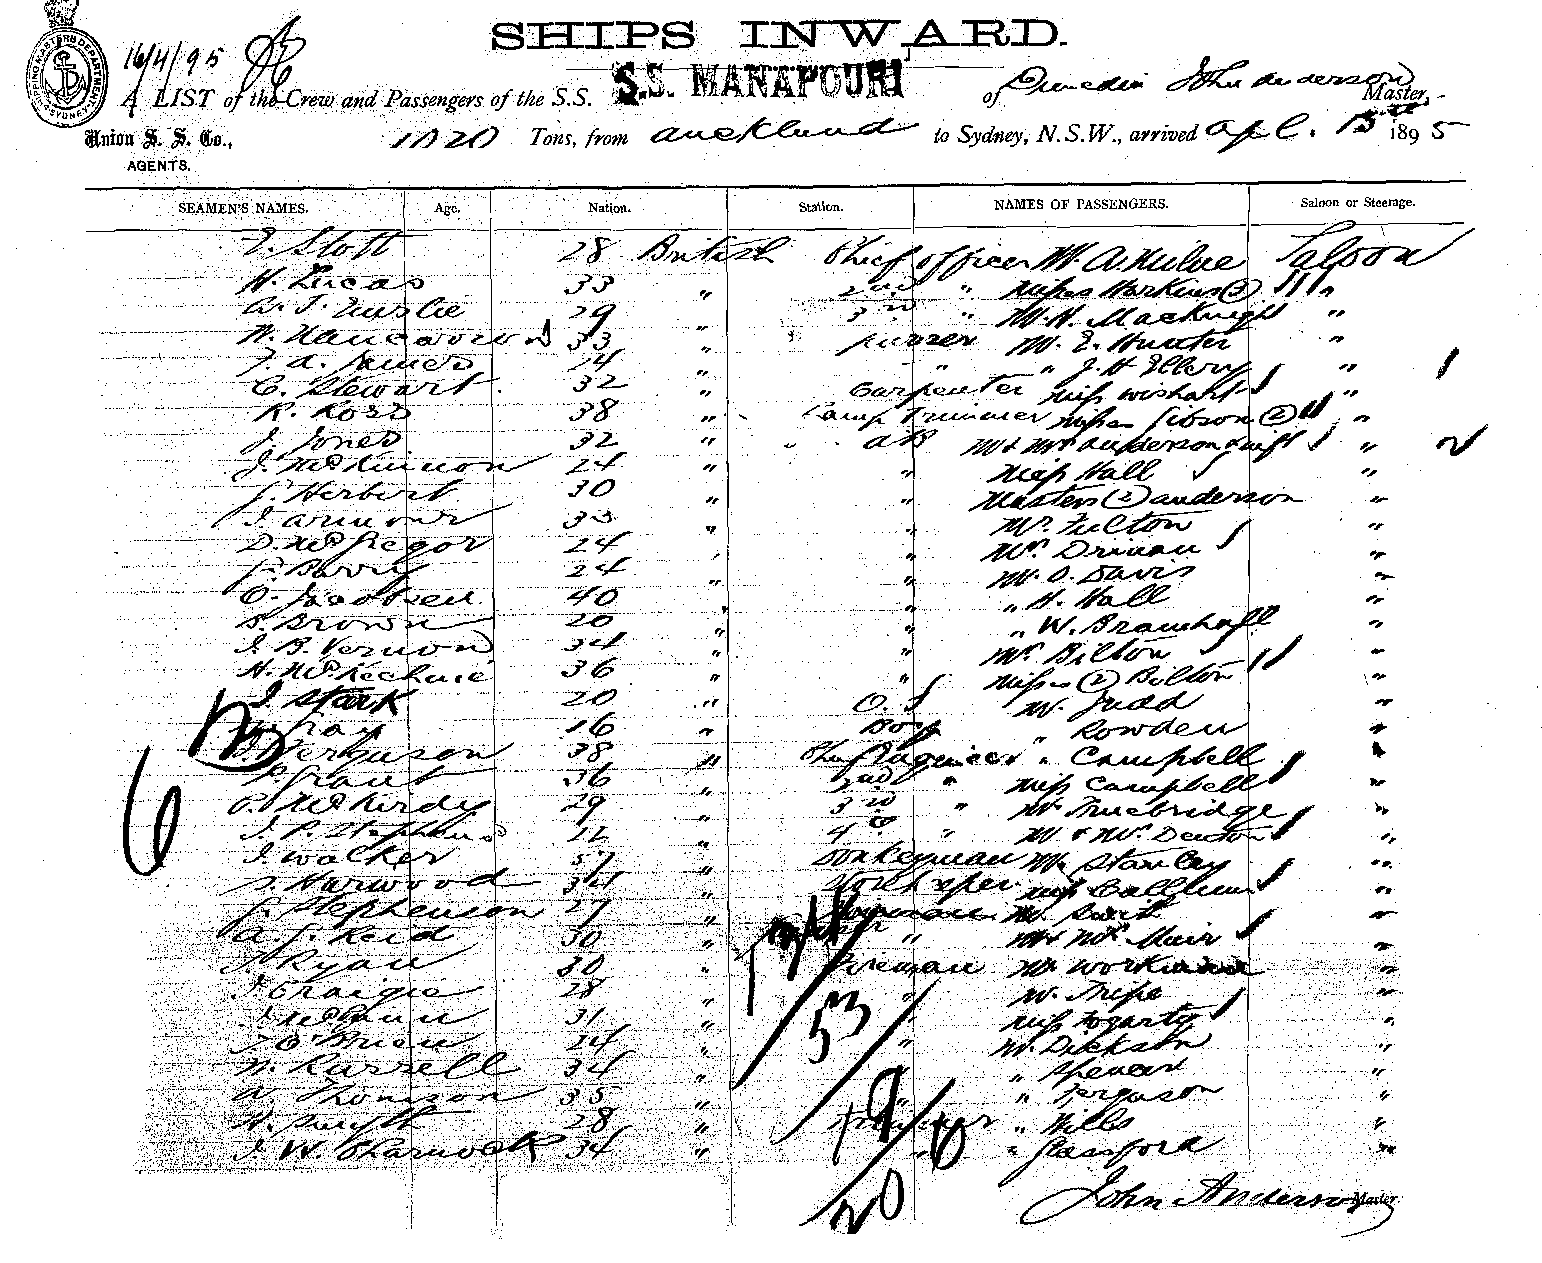 SHIPS INWARD.
16/4/95
A LIST of the Crew and Passengers of the S.S. S.S. MANAPOURI of Dunedin John Anderson Master,
SHIPPING MASTERS DEPARTMENT SYDNEY
Union S. S. Co., 1020 Tons, from Auckland to Sydney, N.S.W., arrived Apl. 15 1895
AGENTS.
SEAMEN'S NAMES. Age. Nation. Station. NAMES OF PASSENGERS. Saloon or Steerage.
Stott 28 British Chief Officer Mr A. Milne Saloon
H. Lucas 33 " 2nd " Misses Harkins (3) "
29 " 3rd " Mr H. MacKnight "
33 " purser Mr. E. Hunter "
James 24 " " " J. H. Ellery "
C. Stewart 32 " Carpenter Miss Wishart "
R. Ross 38 " Lamp Trimmer Misses Gibson (2) "
J. Jones 32 " AB Mr & Mrs Anderson & inft "
J. McKinnon 24 " " Miss Hall "
Herbert 30 " " Masters (2) Anderson "
J. Armour 33 " " Mr. Fulton "
D. McGregor 24 " Mrs. "
Barry 24 " " Mr. O. Davis "
O. Jacobsen 40 " " " H. Hall "
Brown 20 " " " W. Bramhall "
J. B. Vernon 34 " " Mr. Bilton "
H. McKechnie 36 " " Misses (2) Bilton "
J. Stark 20 " O. S Mr. Judd "
Gray 16 " Boy " Rowden "
Ferguson 38 " Chief Engineer " Campbell "
P. Grant 36 " 2nd " Miss Campbell "
P. McKirdy 29 " 3rd " Mr Truebridge "
J. P. Stephens 22 " 4th " Mr & Mrs Denton "
J. Walker 57 " Donkeyman Mr. Stanley "
S. Harwood 34 " Storekeeper Miss "
Stephenson 27 " Mr. "
A. J. Reid 30 " " Mr & Mrs Muir "
Ryan 30 " Fireman Mr Workman "
J. Craigie 28 " " Mr. Tripe "
31 " Miss Fogarty "
O'Brien 24 " " Mr. Dickson "
34 " " Spencer "
W. Thomson 35 " " " Ferguson "
H. Smyth 28 " Trimmer " Mills "
J. W. 34 " " " Glassford "
53
20
John Anderson Master